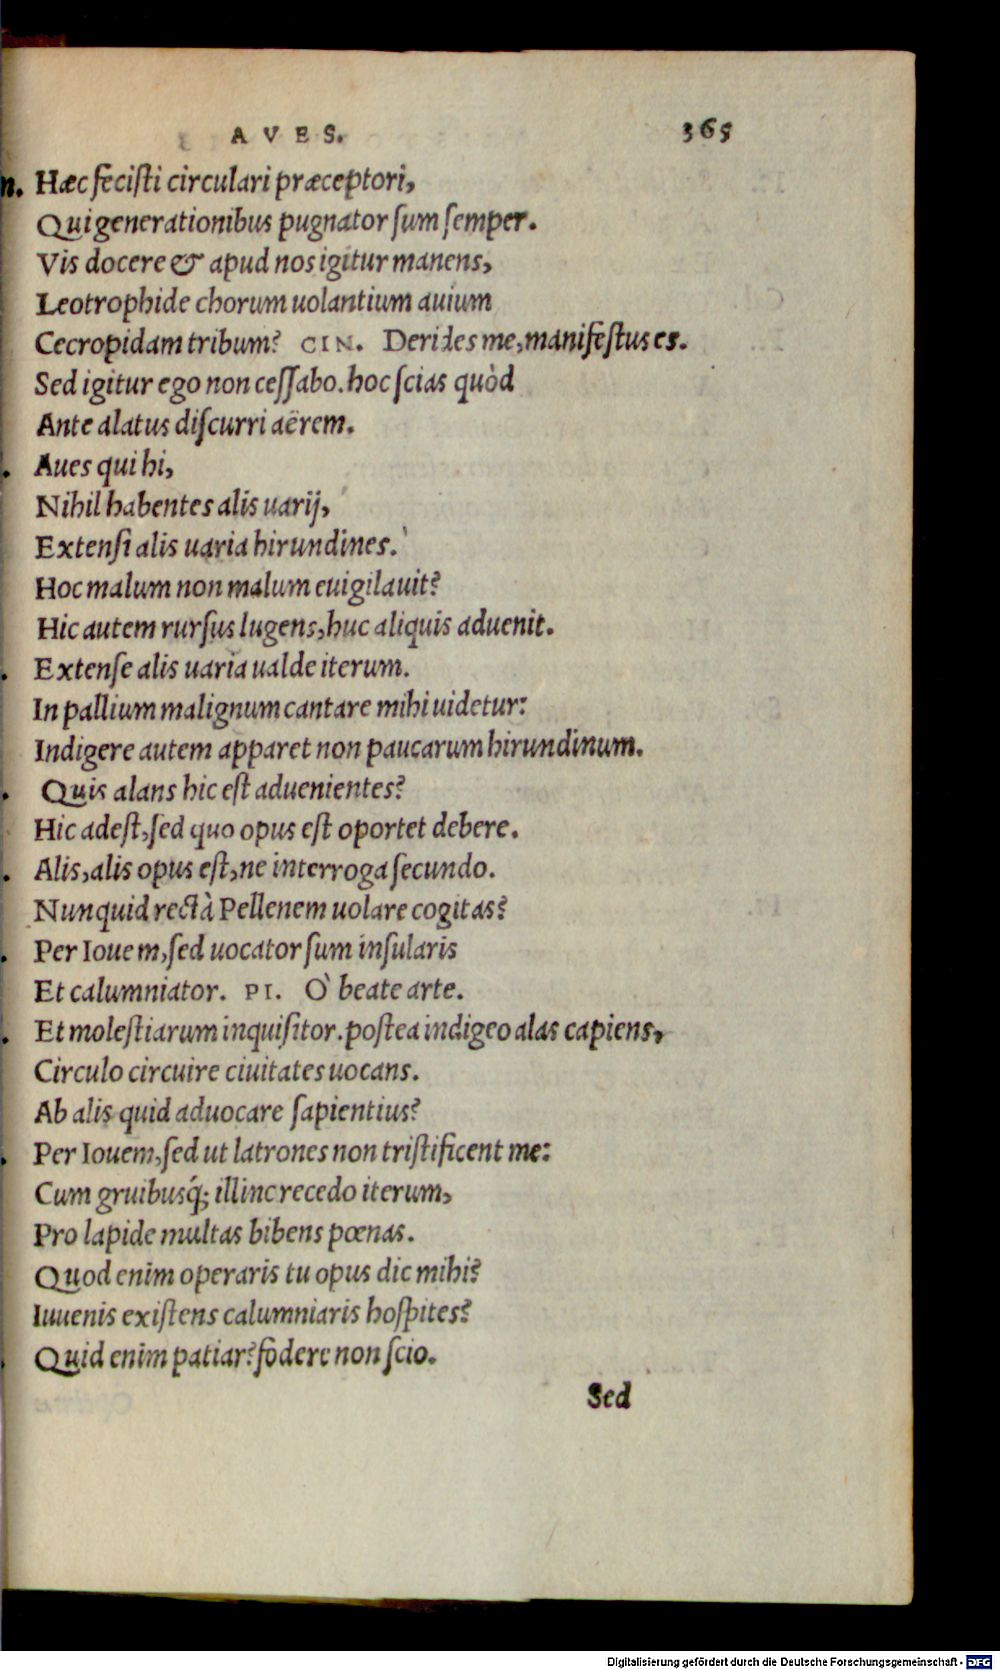 AVES. 365
n. Hæc fecisti circulari præceptori,
Qui generationibus pugnator sum semper.
Vis docere & apud nos igitur manens,
Leotrophide chorum uolantium auium
Cecropidam tribum? CIN. Derides me, manifestus es.
Sed igitur ego non cessabo. hoc scias quòd
Ante alatus discurri aërem.
. Aues qui hi,
Nihil habentes alis uarij,
Extensi alis uaria hirundines.
Hoc malum non malum euigilauit?
Hic autem rursus lugens, huc aliquis aduenit.
. Extense alis uaria ualde iterum.
In pallium malignum cantare mihi uidetur:
Indigere autem apparet non paucarum hirundinum.
. Quis alans hic est aduenientes?
Hic adest, sed quo opus est oportet debere.
. Alis, alis opus est, ne interroga secundo.
Nunquid rectà Pellenem uolare cogitas?
. Per Iouem, sed uocator sum insularis
Et calumniator. PI. O` beate arte.
. Et molestiarum inquisitor. postea indigeo alas capiens,
Circulo circuire ciuitates uocans.
Ab alis quid aduocare sapientius?
. Per Iouem, sed ut latrones non tristificent me:
Cum gruibusq́; illinc recedo iterum,
Pro lapide multas bibens pœnas.
Quod enim operaris tu opus dic mihi?
Iuuenis existens calumniaris hospites?
. Quid enim patiar? fodere non scio.
Sed
Digitalisierung gefördert durch die Deutsche Forschungsgemeinschaft - DFG